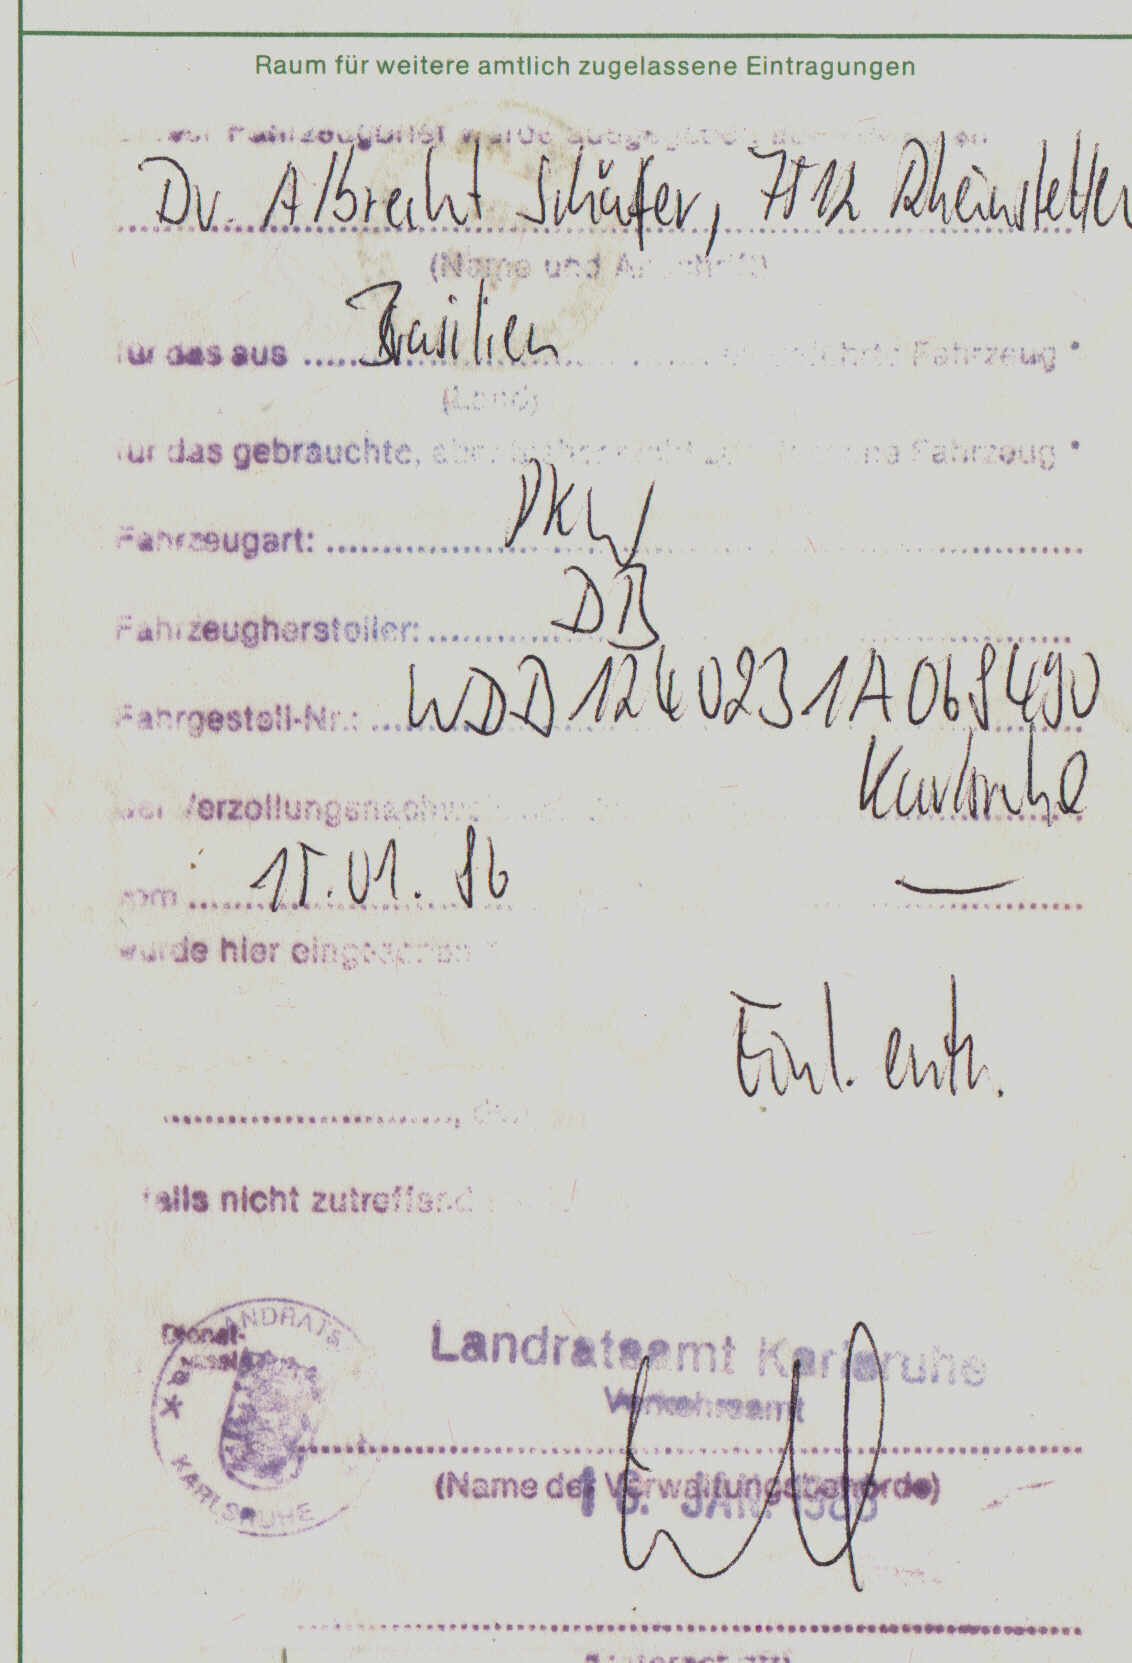 Raum für weitere amtlich zugelassene Eintragungen
Fahrzeugbrief wurde ausgegeben
Dr. Albrecht Schäfer, 7512 Rheinstetten
(Name und Anschrift)
für das aus Brasilien eingeführte Fahrzeug *
(Land)
für das gebrauchte, aber bisher nicht zugelassene Fahrzeug *
Fahrzeugart: PKW
Fahrzeughersteller: DB
Fahrgestell-Nr.: WDD1240231A068490
Der Verzollungsnachweis Karlsruhe
vom 15.01.86
wurde hier eingesehen *
Einl. entr.
, den
falls nicht zutreffend
LANDRATS
KARLSRUHE
Landratsamt Karlsruhe
Verkehrsamt
(Name der Verwaltungsbehörde)
16. JAN. 1986